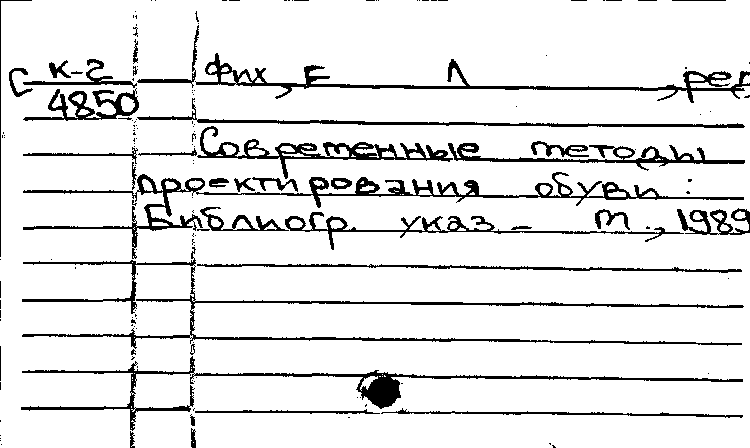 К-2 Фих, Е Л, ред
4850
Современные методы
проектирования обуви:
Библиогр. указ - М., 1989